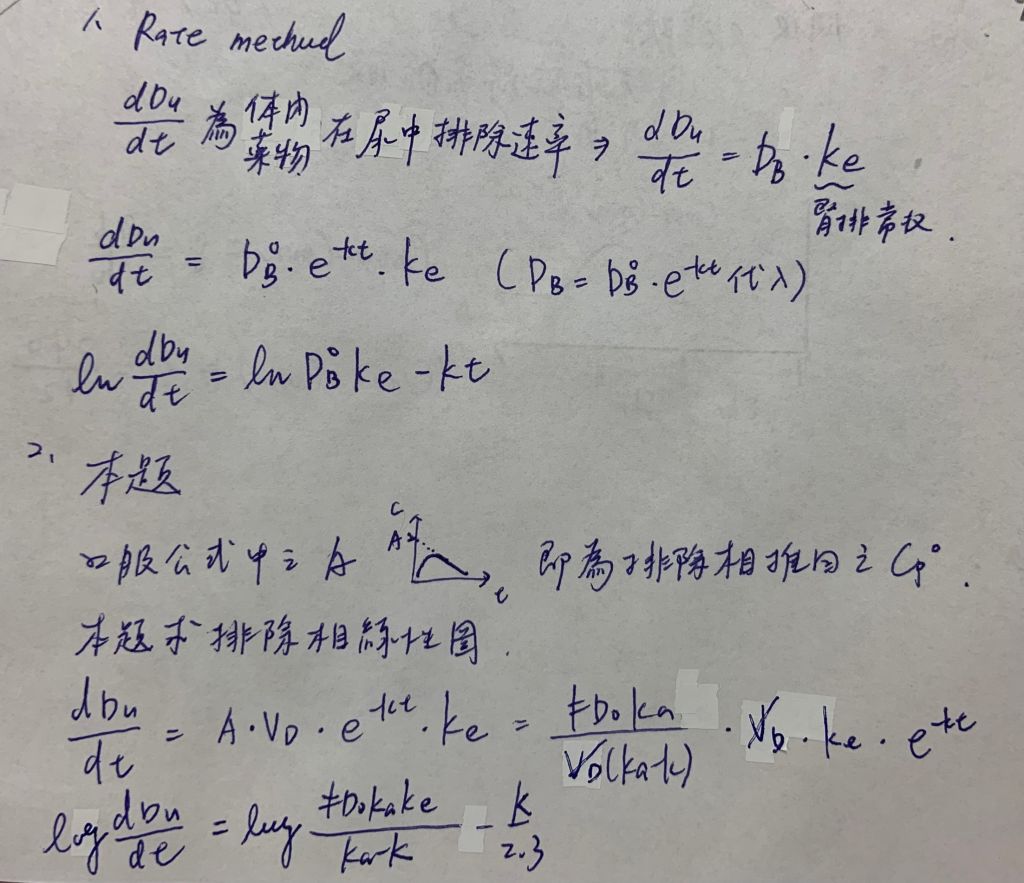 1. Rate method
dDu/dt 為 体內藥物 在尿中排除速率 ⇒ dDu/dt = DB · ke
腎排常数.
dDu/dt = DB° · e^-kt · ke (DB = DB° · e^-kt 代入)
ln dDu/dt = ln DB° ke - kt
2. 本題
口服公式中之 A C A t 即為了排除相推回之 Cp°.
本題求排除相線性圖.
dDu/dt = A · VD · e^-kt · ke = FD0ka/VD(ka-k) · VD · ke · e^-kt
log dDu/dt = log FD0kake/ka-k - k/2.3